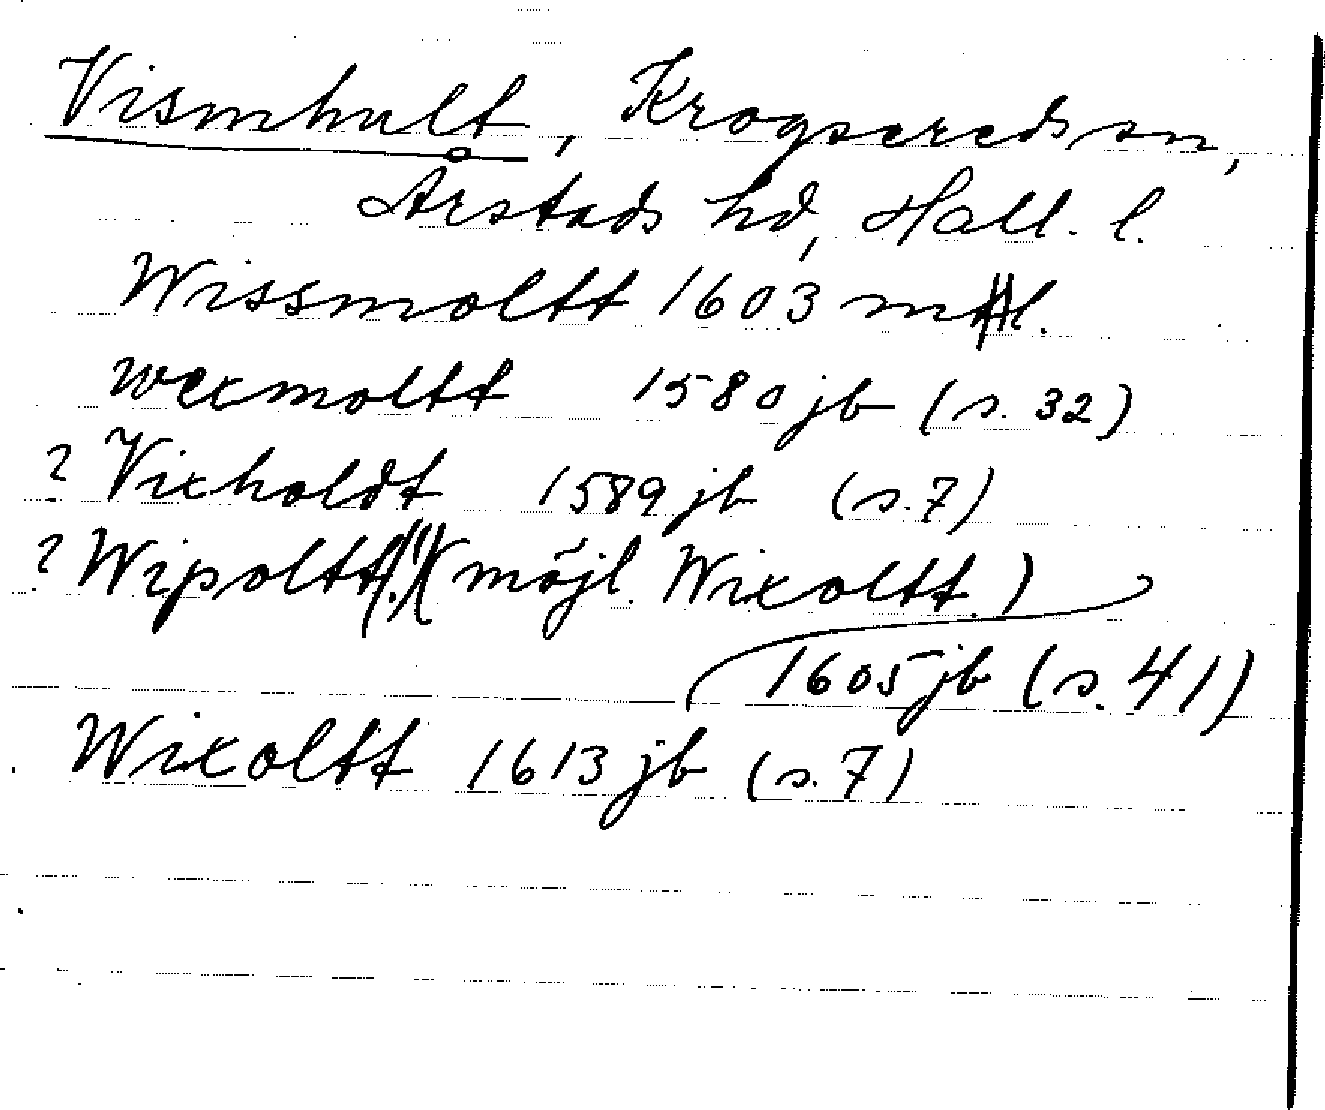 Vismhult, Krogsereds sn,
Årstads hd, Hall. l.
Wissmoltt 1603 ml.
wexmoltt 1580 jb (s. 32)
? Vixholdt 1589 jb (s. 7)
? Wipoltt (möjl. Wixoltt.)
1605 jb (s. 41)
Wixoltt 1613 jb (s. 7)